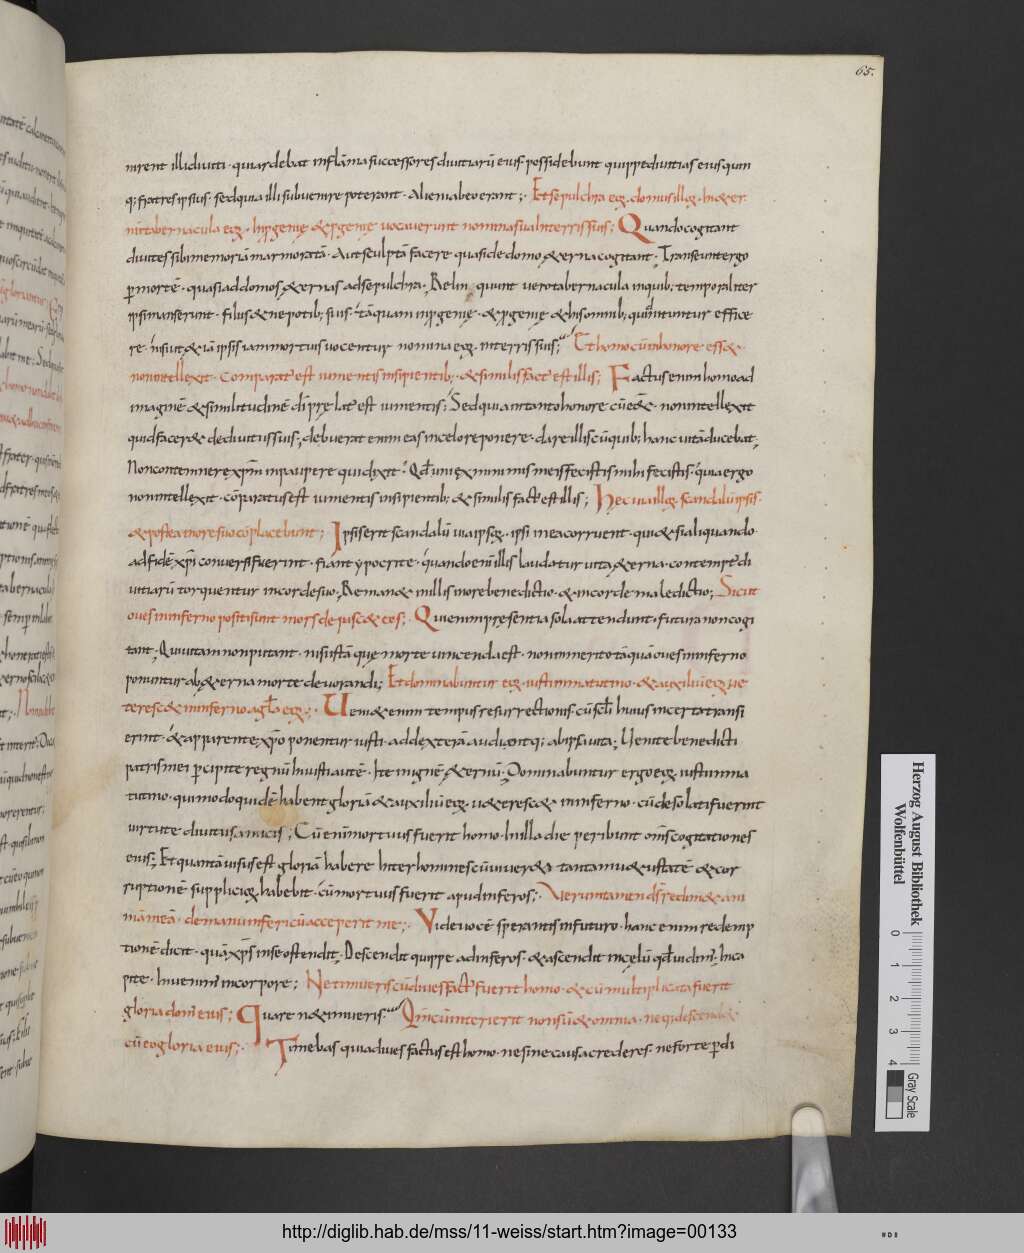 65.
nirent illi diuiti · quia ardebat in flāma successores diuitiarū eius possidebunt quippe diuitias eius quin
q; fratres ipsius · sed quia illi subuenire poterant · alieni ab eo erant; Et sepulchra eoꝝ domus illoꝝ · In &er
nū tabernacula eoꝝ · In pgeniē & pgeniē uocauerunt nomina sua In terris suis; Quando cogitant
diuites sibi memoriā marmoratā · Aut sculptā facere · quasi de domo &erna cogitant · Transeunt ergo
p mortē · quasi ad domos &ernas ad sepulchra · Relin quunt uero tabernacula in quib; temporaliter
ipsi manserunt · filiis & nepotib; suis · tāquam in pgeniē · & pgeniē & his omnib; quid nituntur effice
re · nisi ut & iā ipsis iam mortuis uocentur nomina eoꝝ · in terris suis; Et homo cū in honore ess& ·
non intellexit · Comparat' est iumentis insipientib; · & similis fact' est illis; Factus enim homo ad
imaginē & similitudinē dī prelat' est iumentis; Sed quia in tanto honore cū ess& · non intellexit
quid facer& de diuitiis suis; debuerat enim eas in celo reponere · dare illis cū quib; hanc uitā ducebat;
Non contemnere xpm in paupere qui dixit · Qd uni ex minimis meis fecistis mihi fecistis · quia ergo
non intellexit · cōparatus est iumentis insipientib; & similis fact' est illis; Hec uia illoꝝ scandalū ipsis ·
& postea in ore suo cōplacebunt; Ipsis erit scandalū uia ipsoꝝ · ipsi in ea corruent · qui & si aliquando ·
ad fidē xpi conuersi fuerint · fiant ypocrite · quando eni illis laudatur uita &erna · contempt' di
uitiarū torquentur in corde suo; Remane& in illis in ore benedictio · & in corde maledictio; Sicut
oues in inferno positi sunt mors depasc& eos; Qui enim presentia sola attendunt · futura non cogi
tant; Qui uitam non putant · nisi istā que morte uincenda est · non inmerito tāquā oues in inferno
ponuntur ab &erna morte deuorandi; Et dominabuntur eoꝝ iusti in matutino · & auxiliū eoꝝ ue
teresc& in inferno a gla eoꝝ; Veni& enim tempus resurrectionis · cū scli huius incerta transi
erint · & apparente xpo ponentur iusti · ad dexterā audientq; ab ipsa uita; Venite benedicti
patris mei pcipite regnū Iniusti autē · Ite in ignē &ernū; Dominabuntur ergo eoꝝ iusti in ma
tutino · qui modo quidē habent gloriā & auxiliū eoꝝ · u&eresc& in inferno · cū desolati fuerint
uirtute diuitiis amicis; Cū enī mortuus fuerit homo · In illa die peribunt oms cogitationes
eius; Et quantā uisus est gloriā habere Inter homines cū uiuer& · tantam u&ustatē & cor
ruptionē supplicioꝝ habebit · cū mortuus fuerit apud inferos; Veruntamen ds redim& ani
mā meā · de manu inferi cū acceperit me; Vide uocē sperantis in futuro · hanc enim redemp
tionē dicit · quā xps in se ostendit; Descendit quippe ad inferos · & ascendit in celū qd uidim' · In ca
pite · Inuenim' in corpore; Ne timueris cū diues fact' fuerit homo · & cū multiplicata fuerit
gloria dom' eius; Quare n& imueris · Qm cū interierit non sum& omnia · neq; descend&
cū eo gloria eius; Timebas quia diues factus est homo · ne sine causa crederes · ne forte pdi
Herzog August Bibliothek
Wolfenbüttel
0 1 2 3 4
Gray Scale
http://diglib.hab.de/mss/11-weiss/start.htm?image=00133